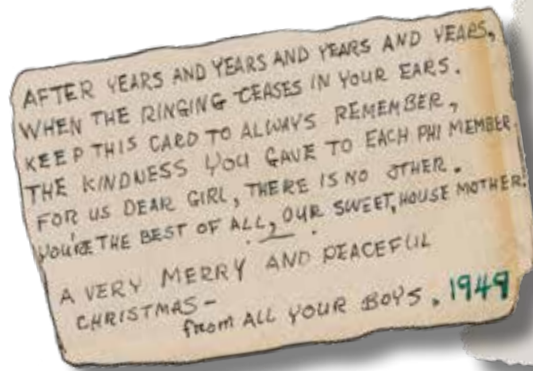 AFTER YEARS AND YEARS AND YEARS AND YEARS,
WHEN THE RINGING CEASES IN YOUR EARS.
KEEP THIS CARD TO ALWAYS REMEMBER,
THE KINDNESS YOU GAVE TO EACH PHI MEMBER.
FOR US DEAR GIRL, THERE IS NO OTHER.
YOU'RE THE BEST OF ALL, OUR SWEET, HOUSE MOTHER.
A VERY MERRY AND PEACEFUL
CHRISTMAS-
from ALL YOUR BOYS. 1949